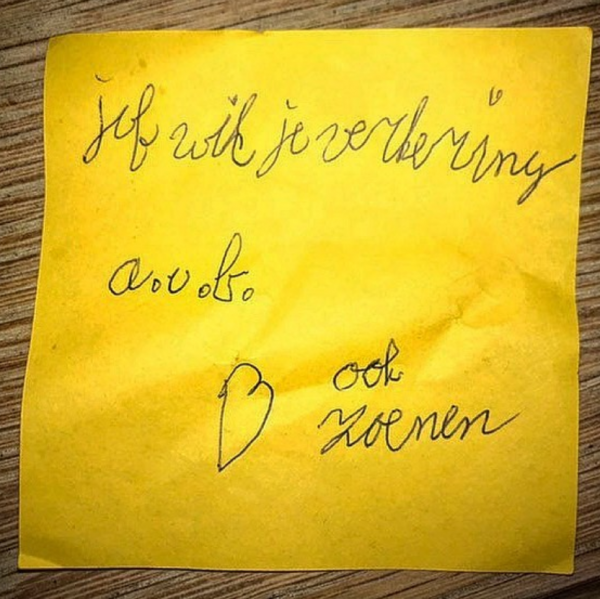 jef wil je verkering
a.u.b.
ook
zoenen